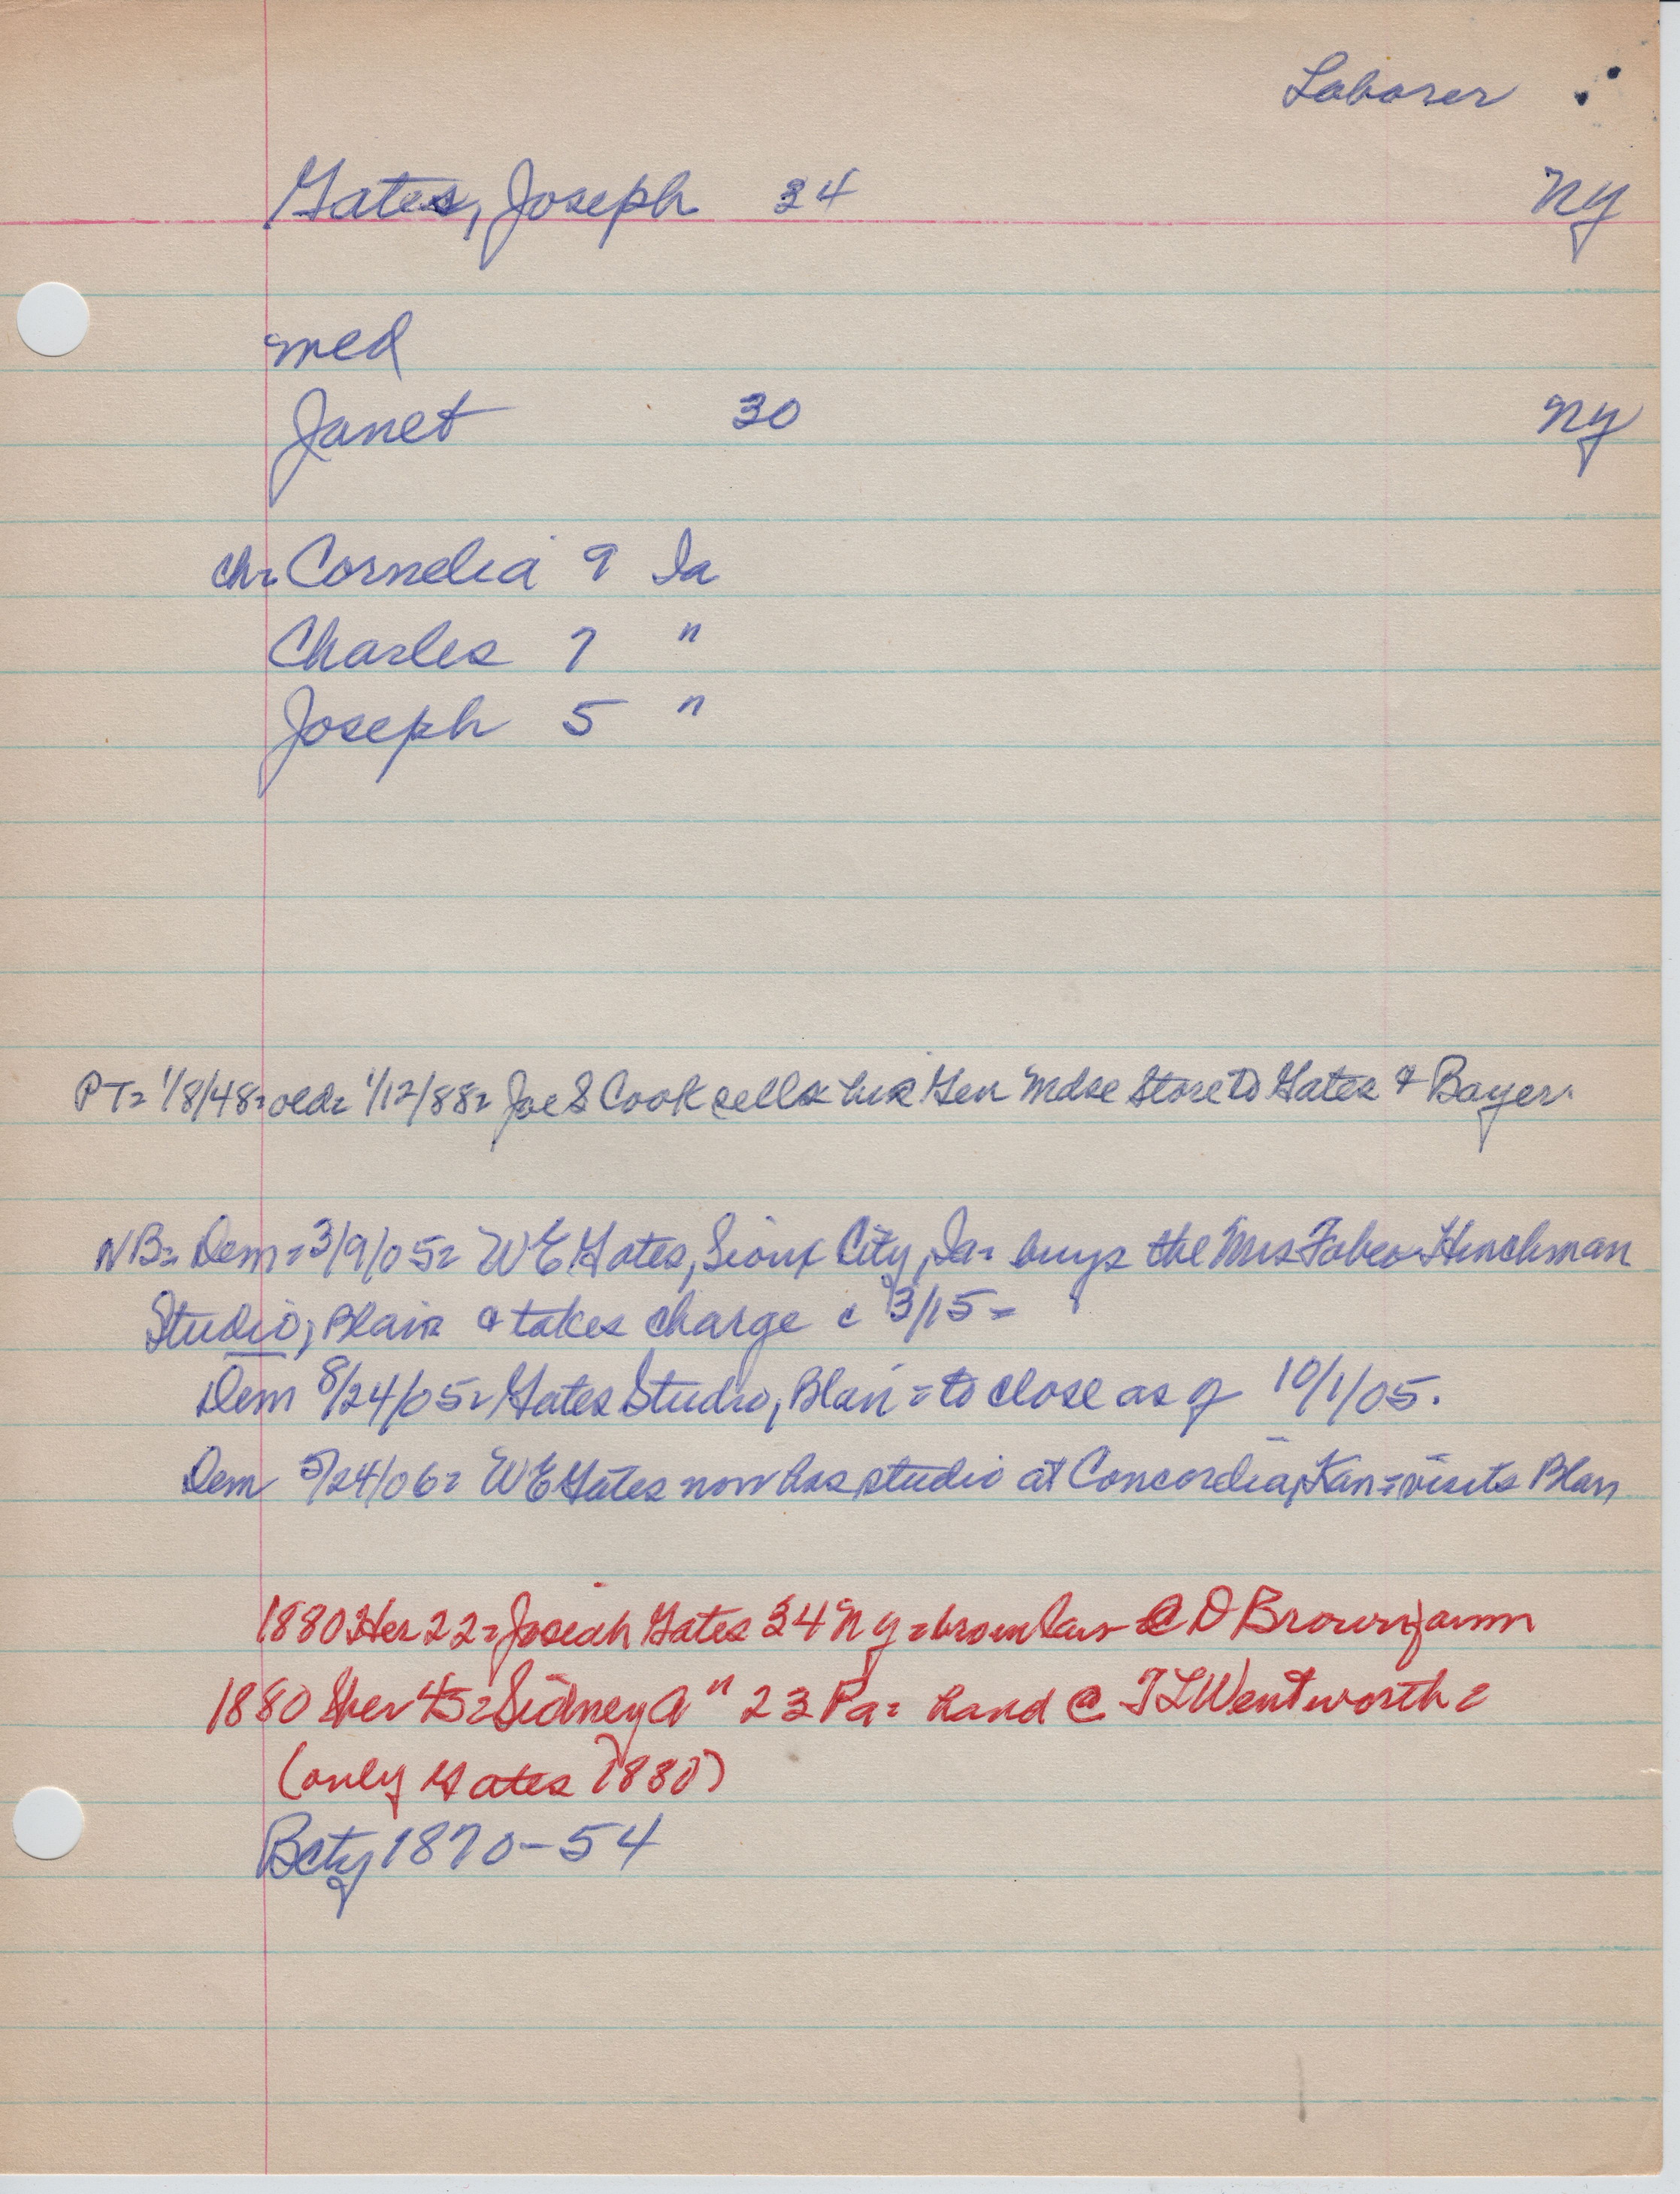 Laborer
Gates, Joseph 34 NY
med
Janet 30 NY
ch= Cornelia 9 Ia
Charles 7 "
Joseph 5 "
PT= 1/8/48= old= 1/12/88= Joe S Cook sells his Gen Mdse Store to Gates & Bayer.
NB= Dem= 3/9/05= WE Gates, Sioux City, Ia= buys the Mrs Hinchman
Studio, Blair & takes charge c 3/15=
Dem 8/24/05= Gates Studio, Blair= to close as of 10/1/05.
Dem 5/24/06= WE Gates now has studio at Concordia, Kan= visits Blair
1880 Her 22= Josiah Gates 34 NY= bro in law @ D Brown farm
1880 Sher 45= Sidney A " 23 Pa= hand @ TL Wentworth=
(only Gates 1880)
Bcty 1870-54